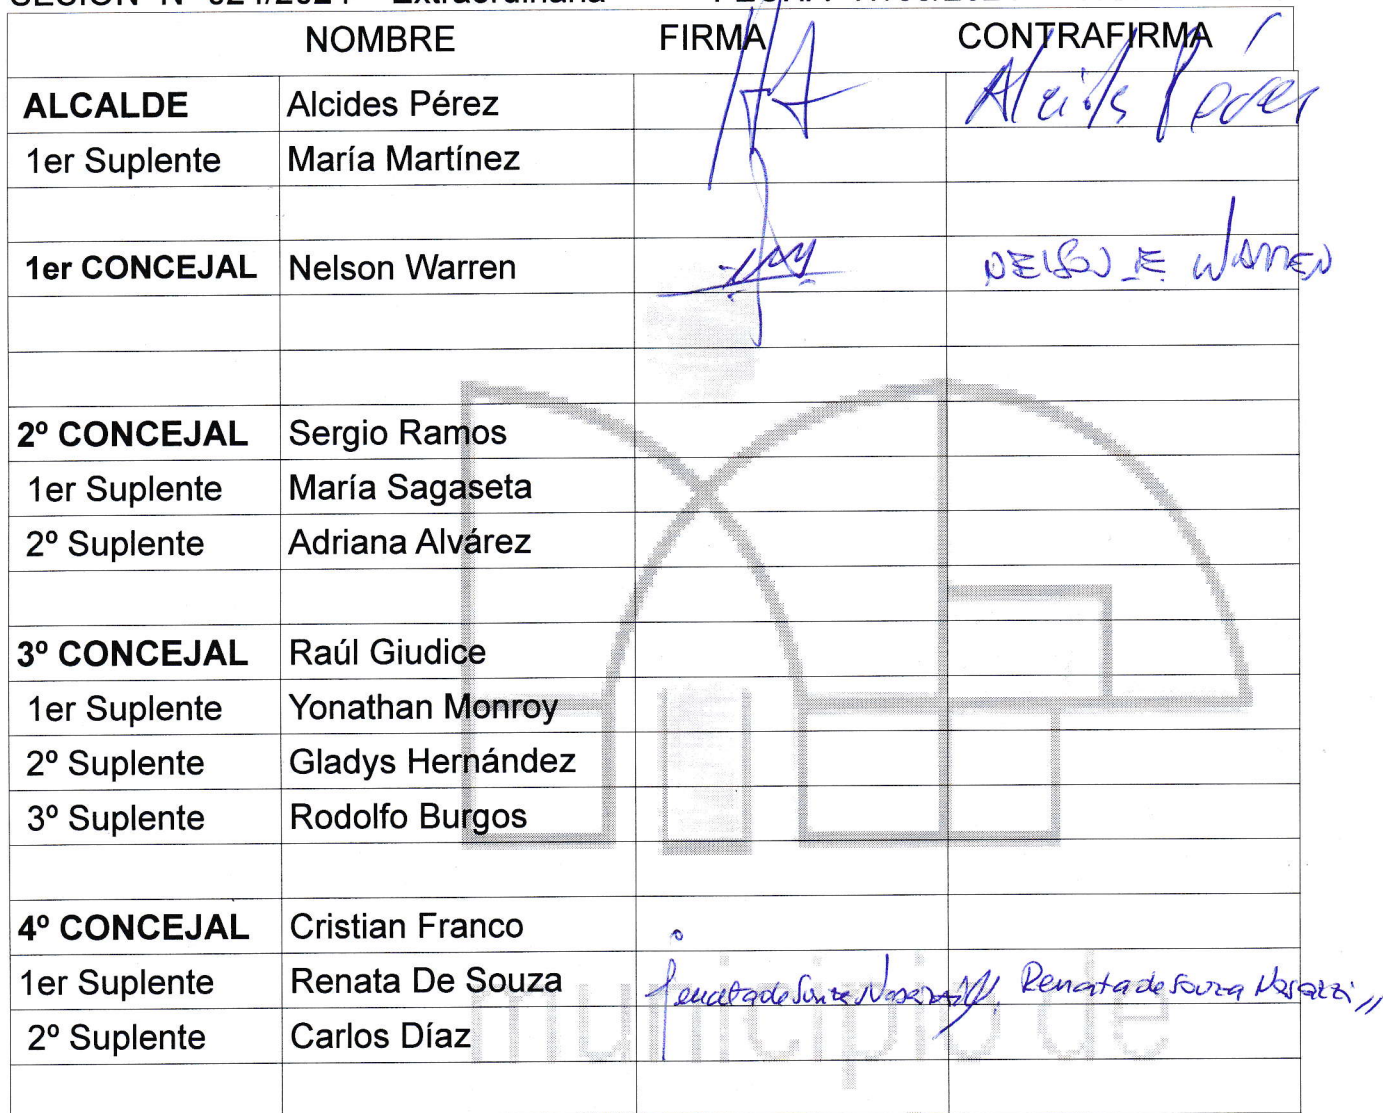 Extraordinaria
NOMBRE FIRMA CONTRAFIRMA
ALCALDE Alcides Pérez Alcides Pérez
1er Suplente María Martínez
1er CONCEJAL Nelson Warren NELSON E WARREN
2º CONCEJAL Sergio Ramos
1er Suplente María Sagaseta
2º Suplente Adriana Alvárez
3º CONCEJAL Raúl Giudice
1er Suplente Yonathan Monroy
2º Suplente Gladys Hernández
3º Suplente Rodolfo Burgos
4º CONCEJAL Cristian Franco
1er Suplente Renata De Souza Renata de Souza Nasazzi Renata de Souza Nasazzi
2º Suplente Carlos Díaz
municipio de